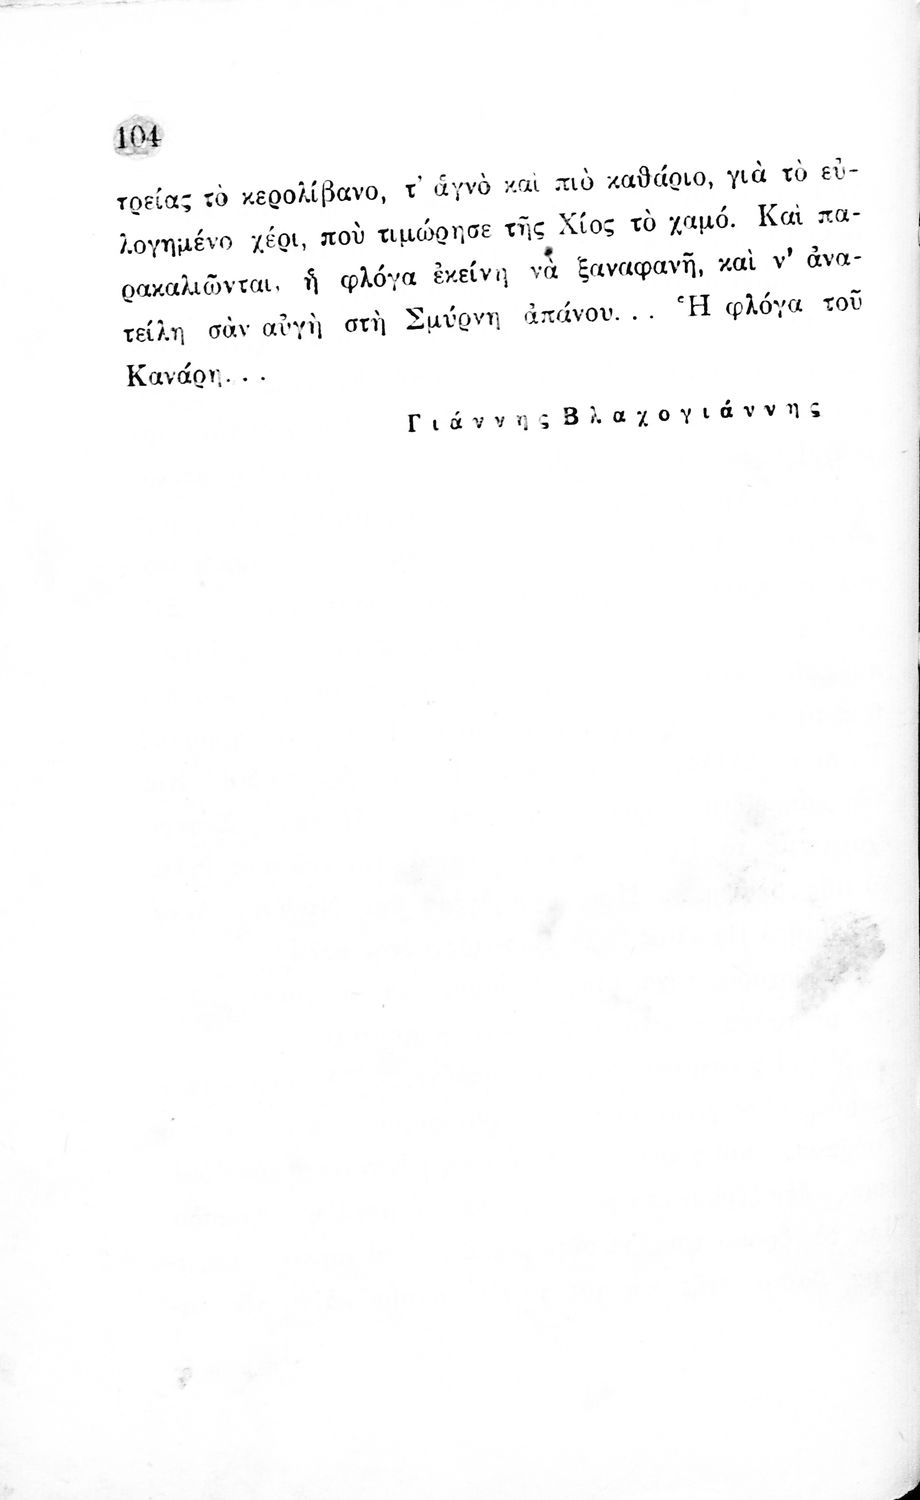 104
τρείας τὸ κερολίβανο, τ' ἁγνὸ καὶ πιὸ καθάριο, γιὰ τὸ εὐ-
λογημένο χέρι, ποὺ τιμώρησε τῆς Χίος τὸ χαμό. Καὶ πα-
ρακαλιῶνται, ἡ φλόγα ἐκείνη νὰ ξαναφανῇ, καὶ ν' ἀνα-
τείλῃ σὰν αὐγὴ στὴ Σμύρνη ἀπάνου. . . Ἡ φλόγα τοῦ
Κανάρη. . .
Γιάννης Βλαχογιάννης